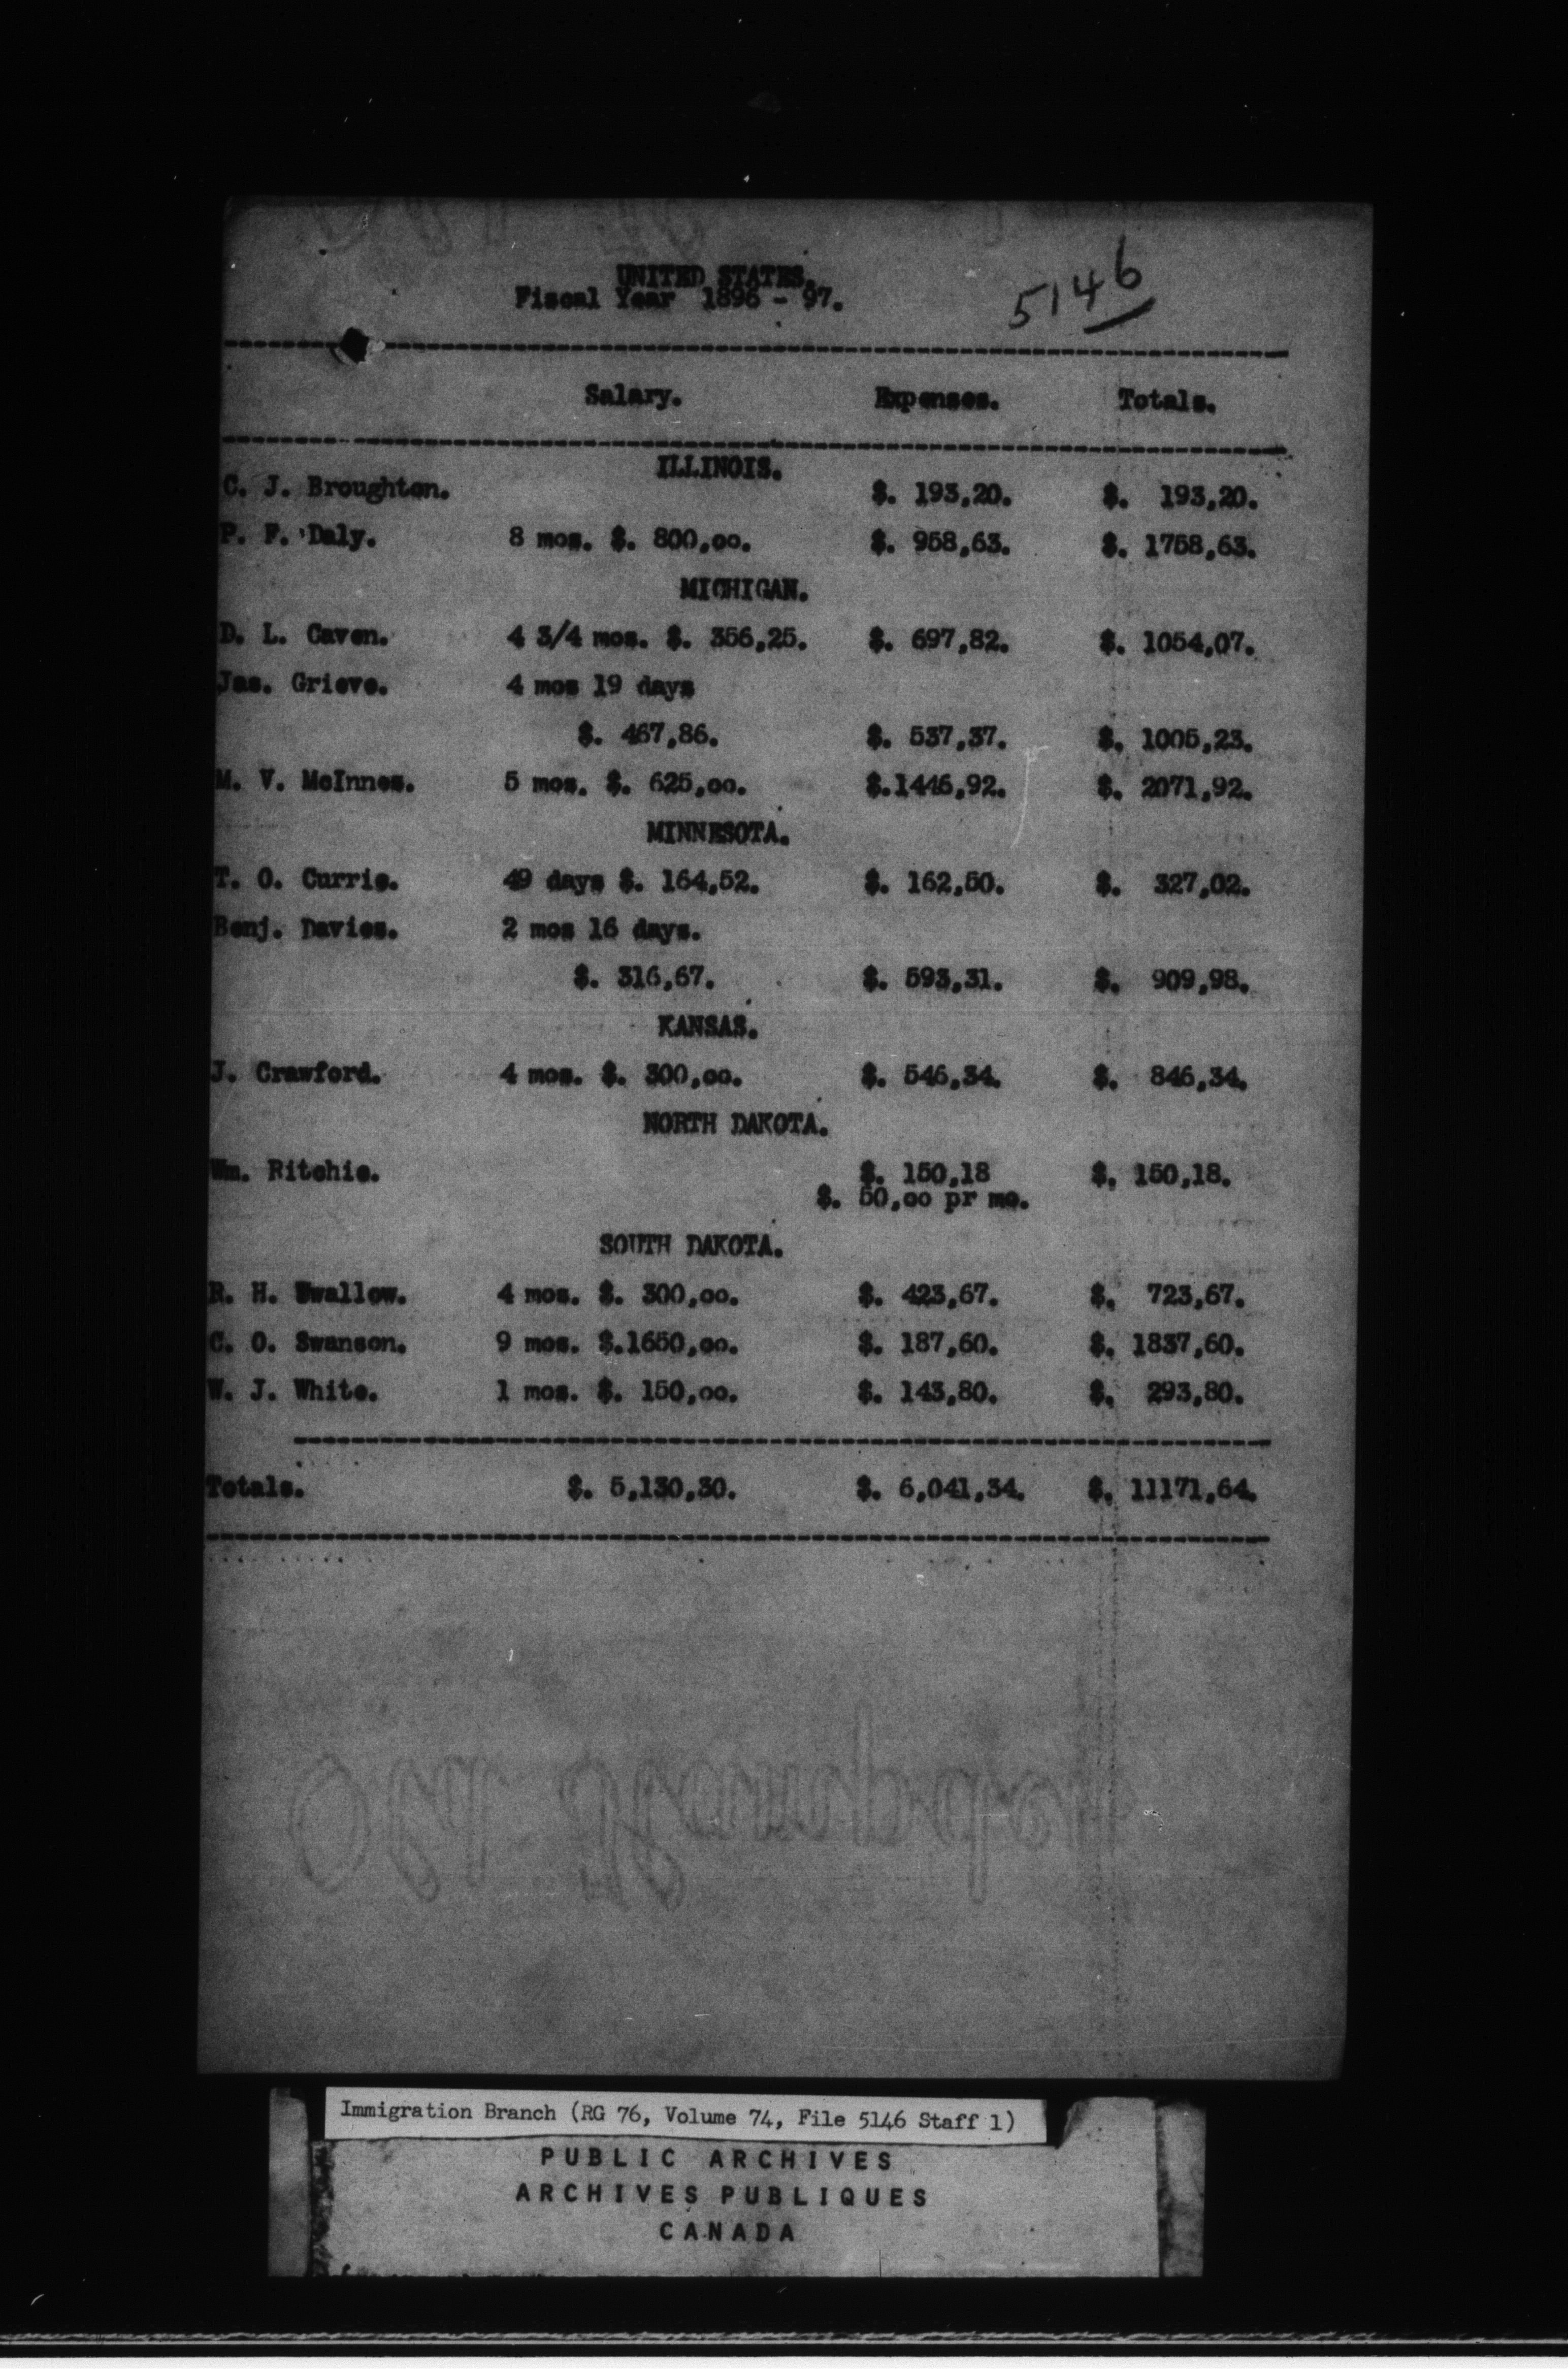 UNITED STATES.
Fiscal Year 1896 - 97.
5146
Salary. Expenses. Totals.
ILLINOIS.
C. J. Broughton. $. 193,20. $. 193,20.
P. F. Daly. 8 mos. $. 800,oo. $. 958,63. $. 1758,63.
MICHIGAN.
D. L. Caven. 4 3/4 mos. $. 356,25. $. 697,82. $. 1054,07.
Jas. Grieve. 4 mos 19 days
$. 467,86. $. 537,37. $. 1005,23.
M. V. McInnes. 5 mos. $. 625,oo. $.1446,92. $. 2071,92.
MINNESOTA.
T. O. Currie. 49 days $. 164,52. $. 162,50. $. 327,02.
Benj. Davies. 2 mos 16 days.
$. 316,67. $. 593,31. $. 909,98.
KANSAS.
J. Crawford. 4 mos. $. 300,oo. $. 546,34. $. 846,34.
NORTH DAKOTA.
Wm. Ritchie. $. 150,18 $. 150,18.
$. 50,oo pr mo.
SOUTH DAKOTA.
R. H. Swallow. 4 mos. $. 300,oo. $. 423,67. $. 723,67.
C. O. Swanson. 9 mos. $.1650,oo. $. 187,60. $. 1837,60.
W. J. White. 1 mos. $. 150,oo. $. 143,80. $. 293,80.
Totals. $. 5,130,30. $. 6,041,34. $. 11171,64.
Immigration Branch (RG 76, Volume 74, File 5146 Staff 1)
PUBLIC ARCHIVES
ARCHIVES PUBLIQUES
CANADA